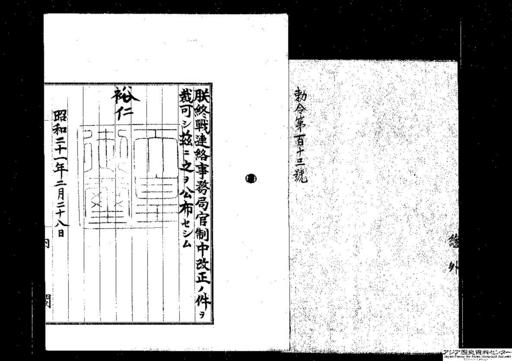 勅令第百十三號
朕終戰連絡事務局官制中改正ノ件ヲ
裁可シ茲ニ之ヲ公布セシム
裕仁
天皇御璽
昭和二十一年二月二十八日
内閣
アジア歴史資料センター